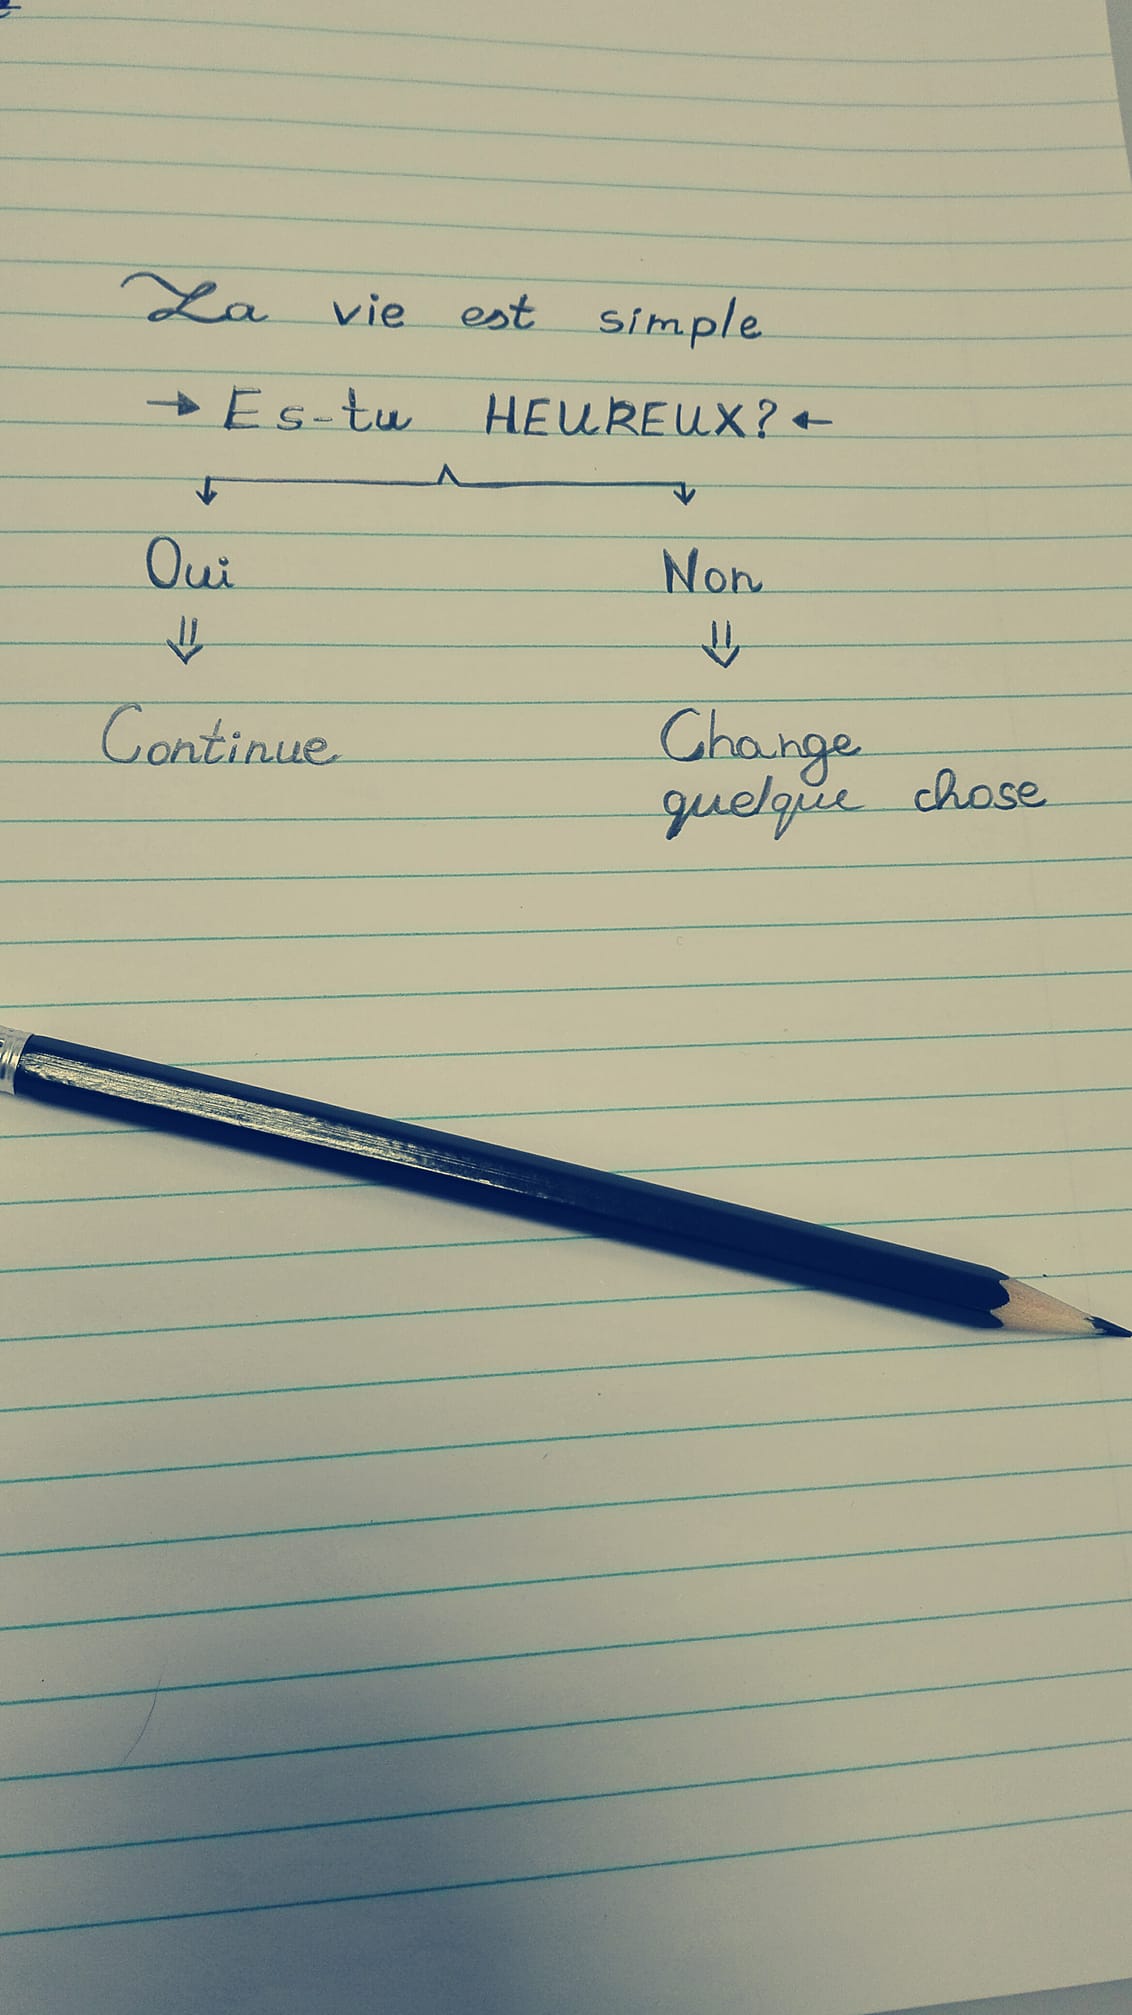 La vie est simple
→ Es-tu HEUREUX? ←
Oui Non
⇓ ⇓
Continue Change
quelque chose